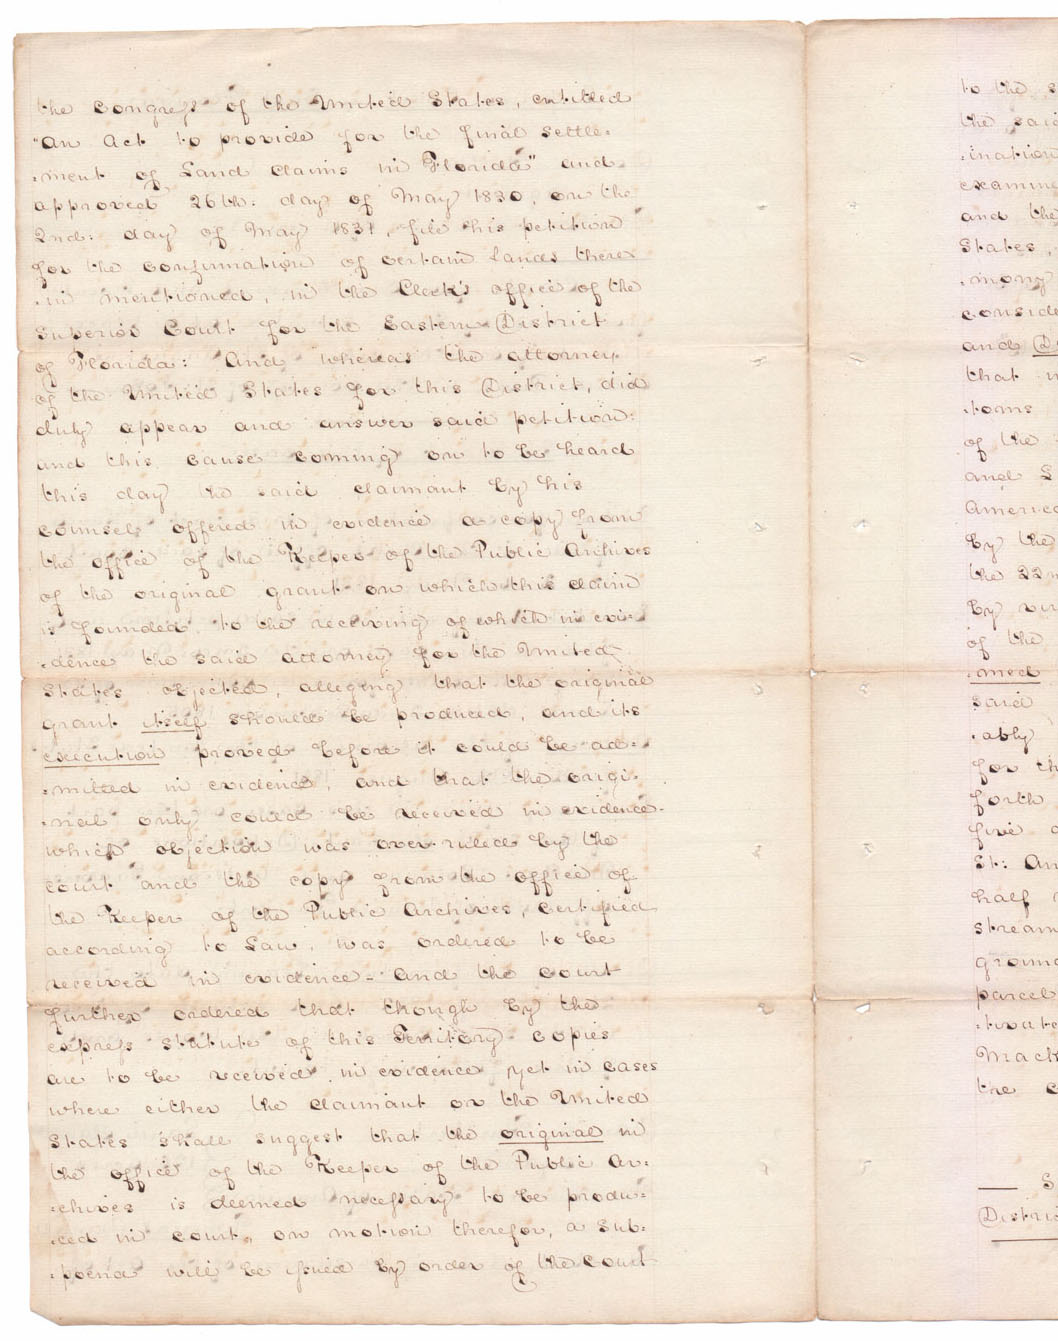 the Congress of the United States, entitled
"An Act to provide for the final settle:
:ment of Land claims in Florida" and
approved 26th: day of May 1830, on the
2nd: day of May 1831, file his petition
for the confirmation of certain Lands there
:in mentioned, in the Clerk's office of the
Superior Court for the Eastern District
of Florida: And whereas the attorney
of the United States for this District, did
duly appear and answer said petition:
and this cause coming on to be heard
this day the said claimant by his
counsel offered in evidence a copy from
the office of the Keeper of the Public Archives
of the original grant on which this claim
is founded, to the receiving of which in evi:
:dence the said attorney for the United
States objected, alleging that the original
grant itself should be produced, and its
execution proved before it could be ad:
:mitted in evidence, and that the origi:
:nal only could be received in evidence.
which objection was over-ruled by the
court and the copy from the office of
the Keeper of the Public Archives, certified
according to Law, was ordered to be
received in evidence - And the court
further ordered that though by the
express statute of this Territory copies
are to be received in evidence yet in cases
where either the claimant or the United
States shall suggest that the original in
the office of the Keeper of the Public Ar:
:chives is deemed necessary to be produ:
:ced in court, on motion therefor, a Sub:
:poena will be issued by order of the Court
to the
the said
:ination
examine
and the
States,
:mony
conside
and
that
:toms
of the
and
America
by the
the 22n
by vir
of the
:med
said
:ably
for th
forth
five
St: An
half
stream
ground
parcel
:tuate
Mack
tre
Distri